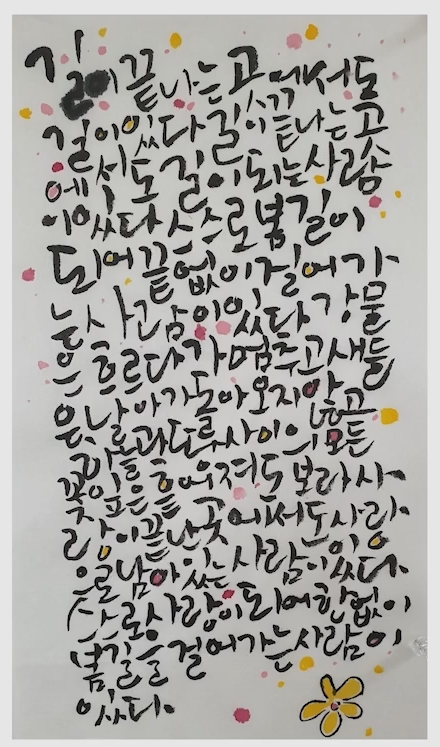 길이 끝나는 곳에서도
길이 있다 길이 끝나는 곳
에서도 길이 되는 사람
이 있다 스스로 봄길이
되어 끝없이 걸어가
는 사람이 있다 강물
은 흐르다가 멈추고 새들
은 날아가 돌아오지 않고
하늘과 땅 사이의 모든
꽃잎은 흩어져도 보라 사
랑이 끝난 곳에서도 사랑
으로 남아 있는 사람이 있다.
스스로 사랑이 되어 한없이
봄길을 걸어가는 사람이
있다.